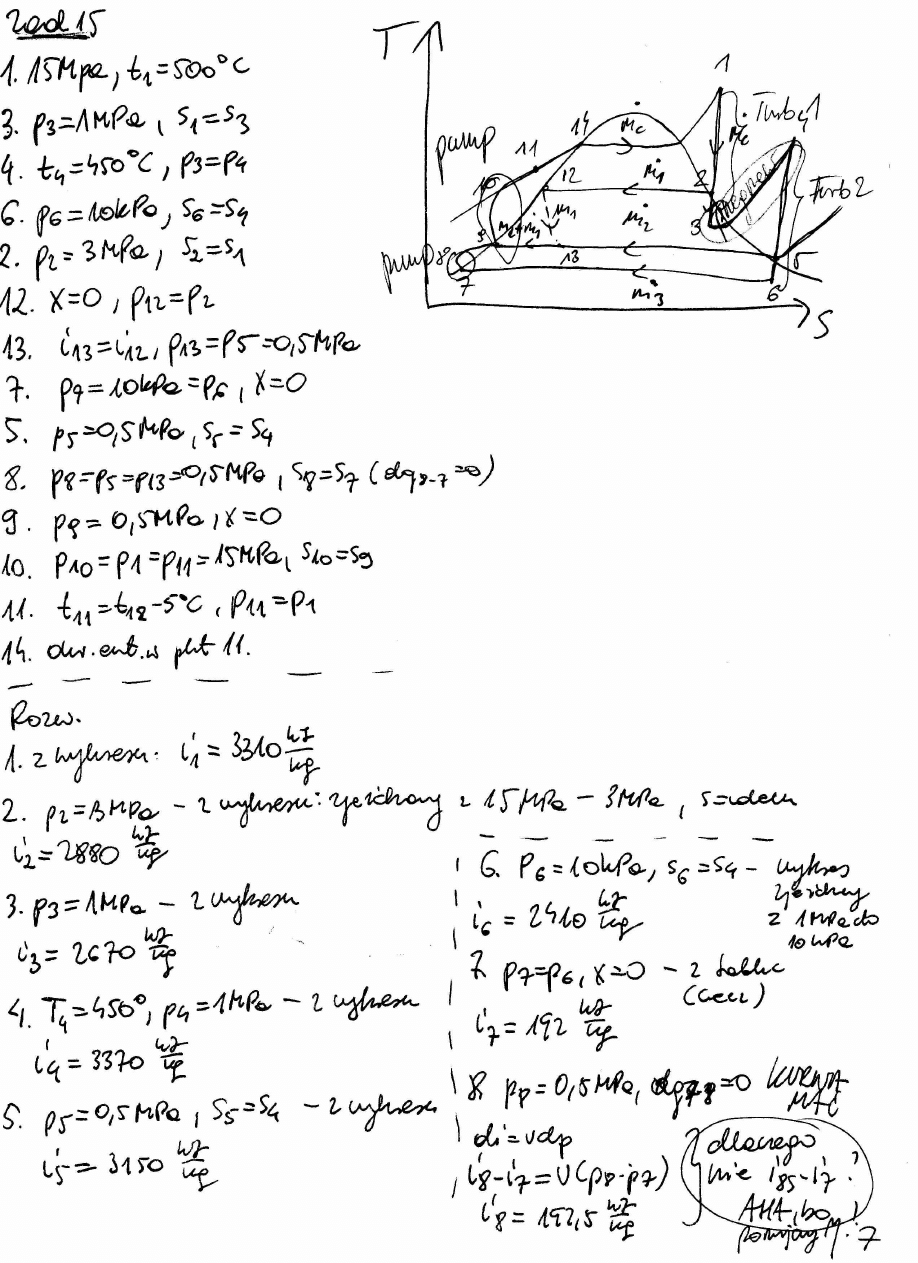 Zad 15
1. 15Mpa, t₁=500°C
3. p3=1MPa, s₁=s₃
4. t₄=450°C, p3=p4
6. p6=10kPa, s6=s4
2. p2=3MPa, s2=s1
12. x=0, p12=p2
13. i13=i12, p13=p5=0,5MPa
7. p9=10kPa=p6, x=0
5. p5=0,5MPa, s5=s4
8. p8=p5=p13=0,5MPa, s8=s7 (dq8-7=0)
9. p9=0,5MPa, x=0
10. p10=p1=p11=15MPa, s10=s9
11. t11=t12-5°C, p11=p1
14. ent. w pkt 11.
T
1
Turb 1
ṁc
ṁc
14
pump
11
12
ṁ1
2
10
ṁ1
3
Turb 2
ṁ2
9
13
5
pump
8
7
ṁ3
6
S
Rozw.
1. z wykresu: i1=3310 kJ/kg
2. p2=3MPa - z wykresu: zjechany z 15MPa - 3MPa,
i2=2880 kJ/kg
3. p3=1MPa - z wykresu
i3=2670 kJ/kg
4. T4=450°, p4=1MPa - z wykresu
i4=3370 kJ/kg
5. p5=0,5MPa, s5=s4 - z wykresu
i5=3150 kJ/kg
6. P6=10kPa, s6=s4 - wykres
zjechany
z 1MPa do
10kPa
i6=2410 kJ/kg
7. p7=p6, x=0 - z tablic
i7=192 kJ/kg
8. p8=0,5MPa, dq78=0 KURWA
MAĆ
di=vdp
i8-i7=v(p8-p7)
i8=192,5 kJ/kg
dlaczego
nie i85-i7?
AHA, bo
7